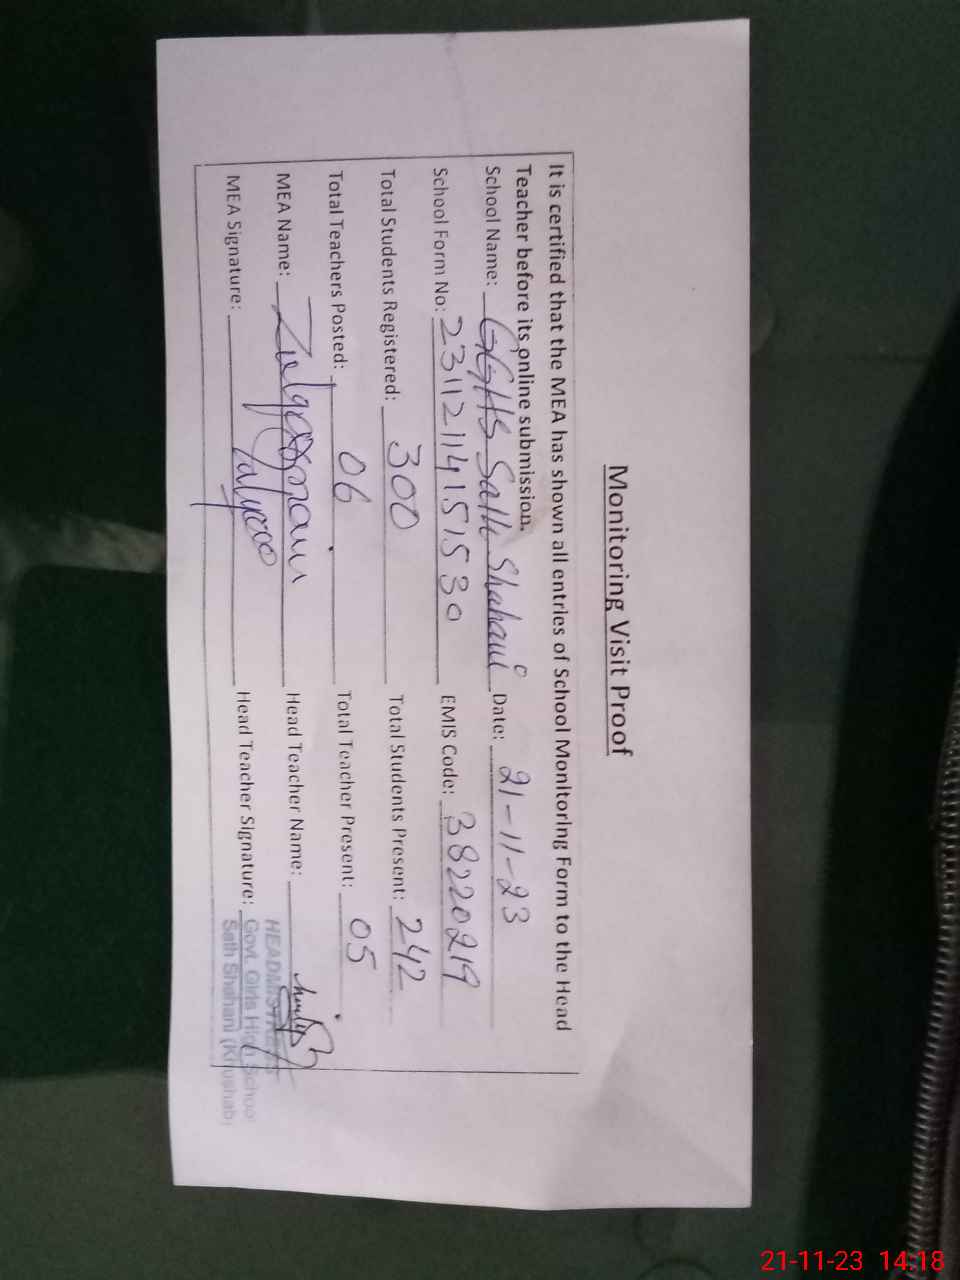 Monitoring Visit Proof
It is certified that the MEA has shown all entries of School Monitoring Form to the Head
Teacher before its online submission.
School Name: GGHS Sath Shahani Date: 21-11-23
School Form No: 23112114151530 EMIS Code: 38220219
Total Students Registered: 300 Total Students Present: 242
Total Teachers Posted: 06 Total Teacher Present: 05
MEA Name: Head Teacher Name:
MEA Signature: Head Teacher Signature:
HEADMISTRESS
Govt. Girls High Schoo
Sath Shahani (Khushab)
21-11-23 14:18